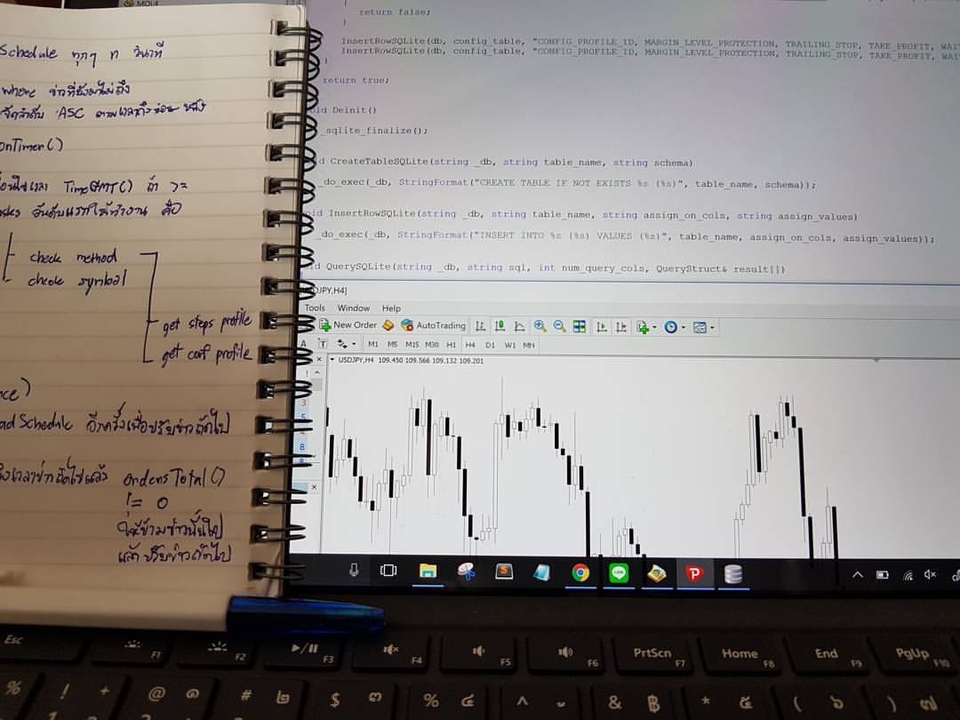 Schedule ทุกๆ n วินาที
where ข่าวที่ยังมาไม่ถึง
ASC
onTimer()
TimeGMT() ถ้า >=
คือ
check method
check symbol
get steps profile
get conf profile
Schedule อีกครั้งเพื่อปรับข่าวถัดไป
ordersTotal()
!= 0
ให้ข้ามข่าวนั้นไป
แล้วปรับข่าวถัดไป
MQL4
{
return false;
}
InsertRowSQLite(db, config_table, "CONFIG_PROFILE_ID, MARGIN_LEVEL_PROTECTION, TRAILING_STOP, TAKE_PROFIT, WAI
InsertRowSQLite(db, config_table, "CONFIG_PROFILE_ID, MARGIN_LEVEL_PROTECTION, TRAILING_STOP, TAKE_PROFIT, WAI
}
return true;
Deinit()
sqlite_finalize();
CreateTableSQLite(string _db, string table_name, string schema)
_do_exec(_db, StringFormat("CREATE TABLE IF NOT EXISTS %s (%s)", table_name, schema));
InsertRowSQLite(string _db, string table_name, string assign_on_cols, string assign_values)
_do_exec(_db, StringFormat("INSERT INTO %s (%s) VALUES (%s)", table_name, assign_on_cols, assign_values));
QuerySQLite(string _db, string sql, int num_query_cols, QueryStruct& result[])
DJPY,H4]
Tools Window Help
New Order AutoTrading
A T M1 M5 M15 M30 H1 H4 D1 W1 MN
USDJPY,H4 109.450 109.566 109.132 109.201
Esc F1 F2 F3 F4 F5 F6 PrtScn F7 Home F8 End F9 PgUp F10
% ! + @ ๑ # ๒ $ ๓ % ๔ ^ & ฿ * ๕ ( ๖ ) ๗